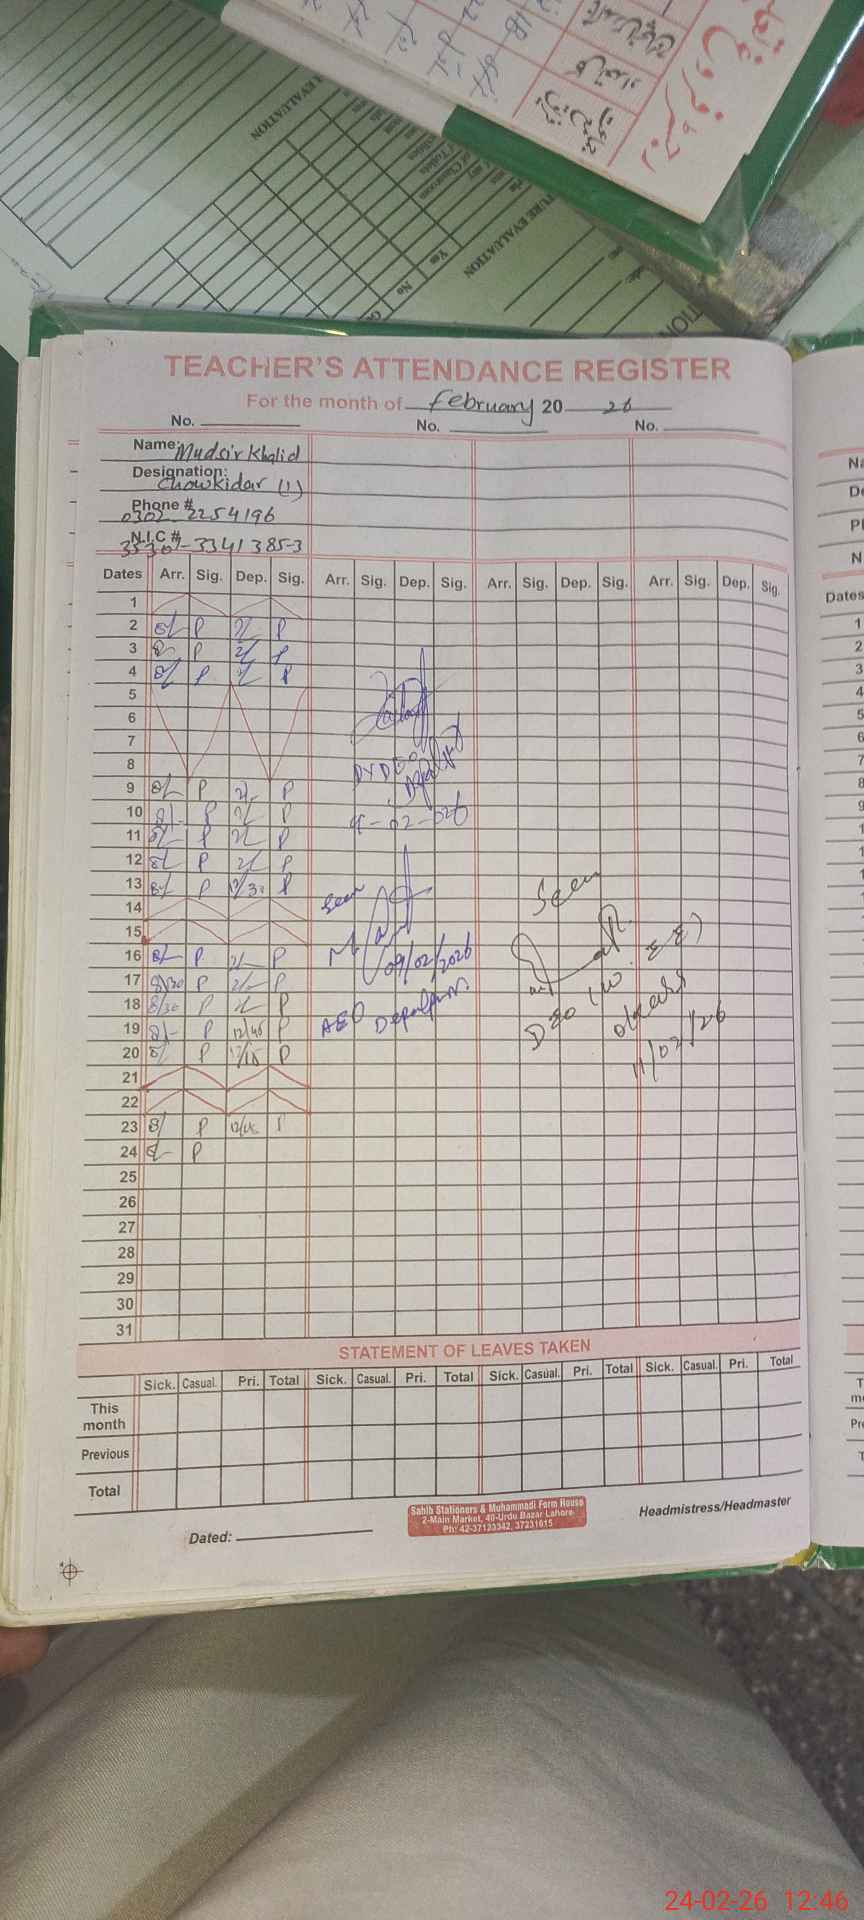 TURE EVALUATION
Yes
No
TEACHER'S ATTENDANCE REGISTER
For the month of February 20 26
No. No. No.
Name: Mudsir Khalid
Designation: Chowkidar (1)
Phone # 0302-2254196
N.I.C # 35301-3341385-3
Dates Arr. Sig. Dep. Sig. Arr. Sig. Dep. Sig. Arr. Sig. Dep. Sig. Arr. Sig. Dep. Sig.
1
2 8/- P 2/- P
3 8/- P 2/- P
4 8/- P 2/- P
5
6
7
8
9 8/- P 2/- P
10 8/- P 2/- P
11 8/- P 2/- P
12 8/- P 2/- P
13 8/- P 12/30 P
14
15
16 8/- P 2/- P
17 8/30 P 2/- P
18 8/30 P 2/- P
19 8/- P 12/45 P
20 8/- P P
21
22
23 8/ P P
24 8/- P
25
26
27
28
29
30
31
DYDEO
-02-026
Seen
09/02/2026
AEO Depalpur
Seen
DEO (W. EE)
Okara
11/02/26
STATEMENT OF LEAVES TAKEN
Sick. Casual. Pri. Total Sick. Casual. Pri. Total Sick. Casual. Pri. Total Sick. Casual. Pri. Total
This month
Previous
Total
Sahib Stationers & Muhammadi Form House
2-Main Market, 40-Urdu Bazar Lahore
Ph: 42-37123342, 37231615
Headmistress/Headmaster
Dated:
Dates
1
2
3
4
5
6
7
8
9
24-02-26 12:46